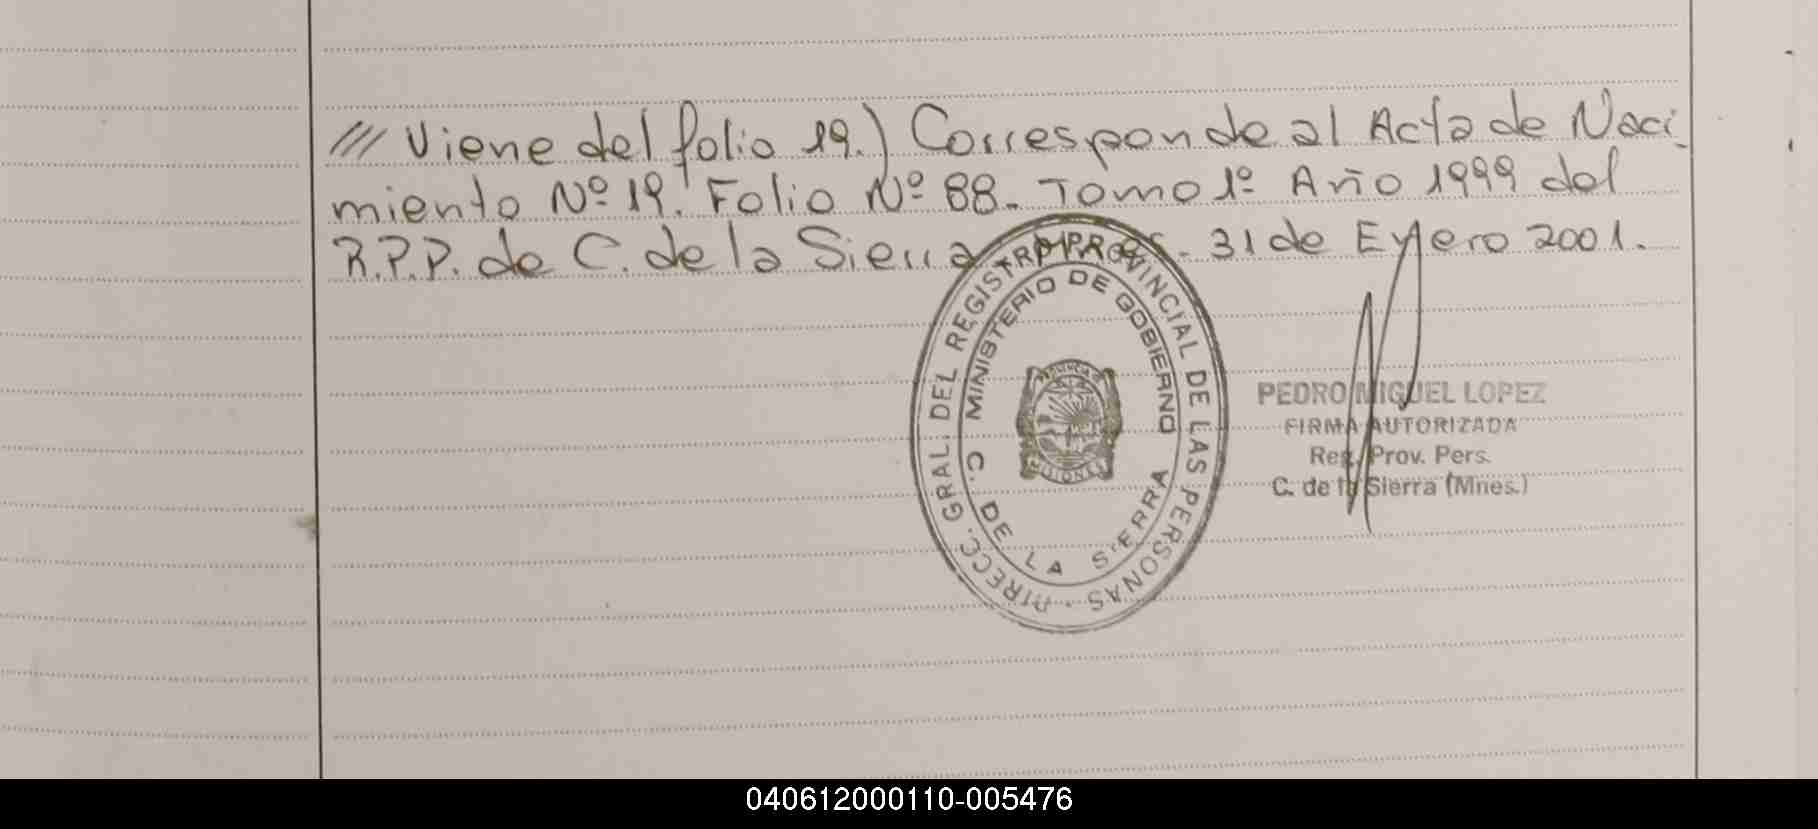 /// Viene del folio 19.) Corresponde al Acta de Naci
miento Nº 19. Folio Nº 88. Tomo 1º Año 1999 del
R.P.P. de C. de la Sierra 31 de Enero 2001.
DIRECC. GRAL. DEL REGISTRO PROVINCIAL DE LAS PERSONAS
MINISTERIO DE GOBIERNO
PROVINCIA
MISIONES
C. DE LA SIERRA
PEDRO MIGUEL LOPEZ
FIRMA AUTORIZADA
Reg. Prov. Pers.
C. de la Sierra (Mnes.)
040612000110-005476